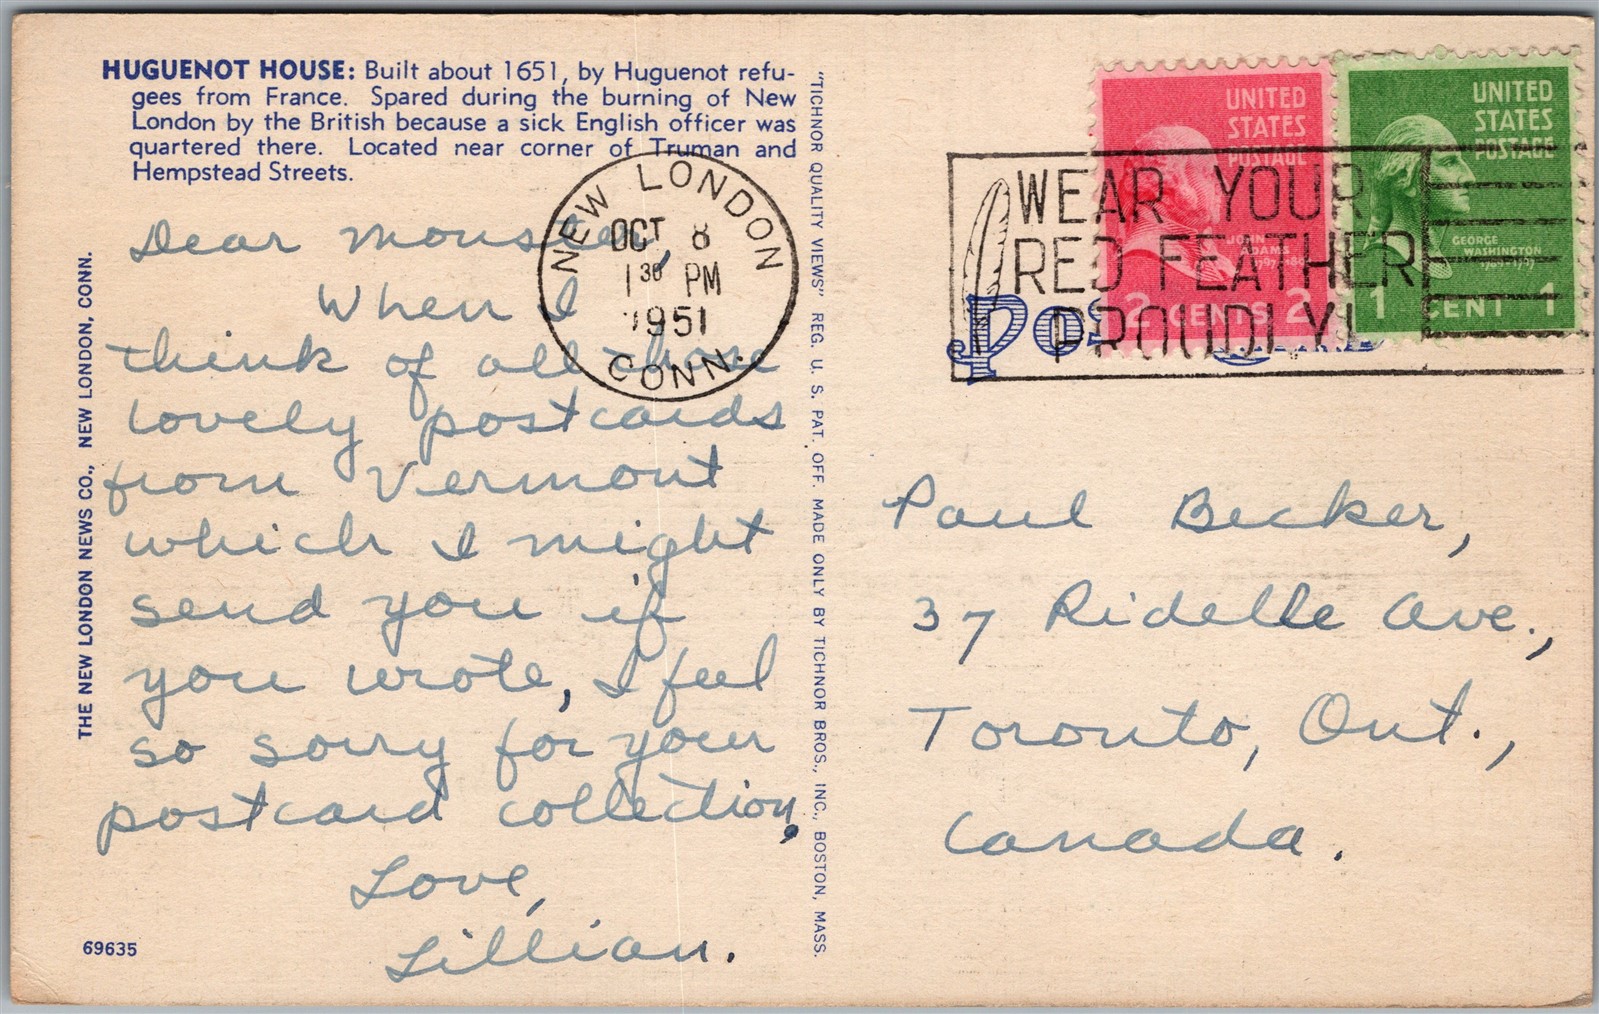 HUGUENOT HOUSE: Built about 1651, by Huguenot refu-
gees from France. Spared during the burning of New
London by the British because a sick English officer was
quartered there. Located near corner of Truman and
Hempstead Streets.
Dear Monster,
When I
think of all those
lovely postcards
from Vermont
which I might
send you if
you wrote, I feel
so sorry for your
postcard collection,
Love,
Lillian.
69635
THE NEW LONDON NEWS CO., NEW LONDON, CONN.
"TICHNOR QUALITY VIEWS" REG. U. S. PAT. OFF. MADE ONLY BY TICHNOR BROS., INC., BOSTON, MASS.
NEW LONDON
OCT 8
1 30 PM
1951
CONN.
WEAR YOUR
RED FEATHER
PROUDLY!
UNITED
STATES
POSTAGE
JOHN
ADAMS
1797-1801
2 CENTS 2
UNITED
STATES
POSTAGE
GEORGE
WASHINGTON
1789-1797
1 CENT 1
Paul Becker,
37 Ridelle Ave.,
Toronto, Ont.,
Canada.